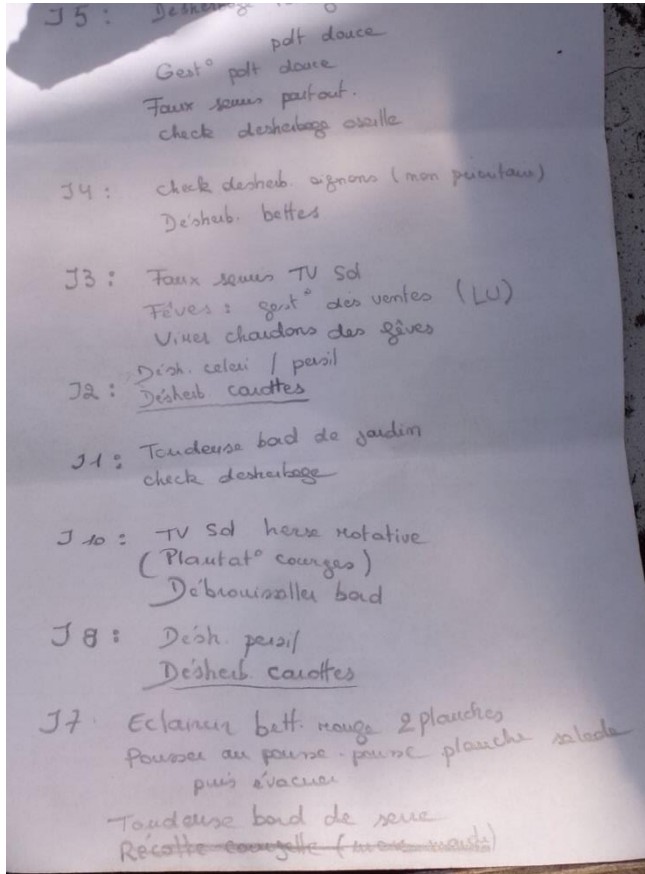 J5 : Desherbage
pdt douce
Gest° pdt douce
Faux semis partout.
check desherbage oseille
J4 : check desherb. oignons (non prioritaire)
Désherb. bettes
J3 : Faux semis TV Sol
Fèves : gest° des ventes (LU)
Virer chardons des fèves
Désh. celeri / persil
J2 : Désherb carottes
J1 : Tondeuse bord de jardin
check desherbage
J10 : TV Sol herse rotative
(Plantat° courges)
Débroussailler bord
J8 : Désh. persil
Désherb. carottes
J7 Eclaircir bett. rouge 2 planches
Passer au pousse-pousse planche salade
puis évacuer
Tondeuse bord de serre
Récolte courgette